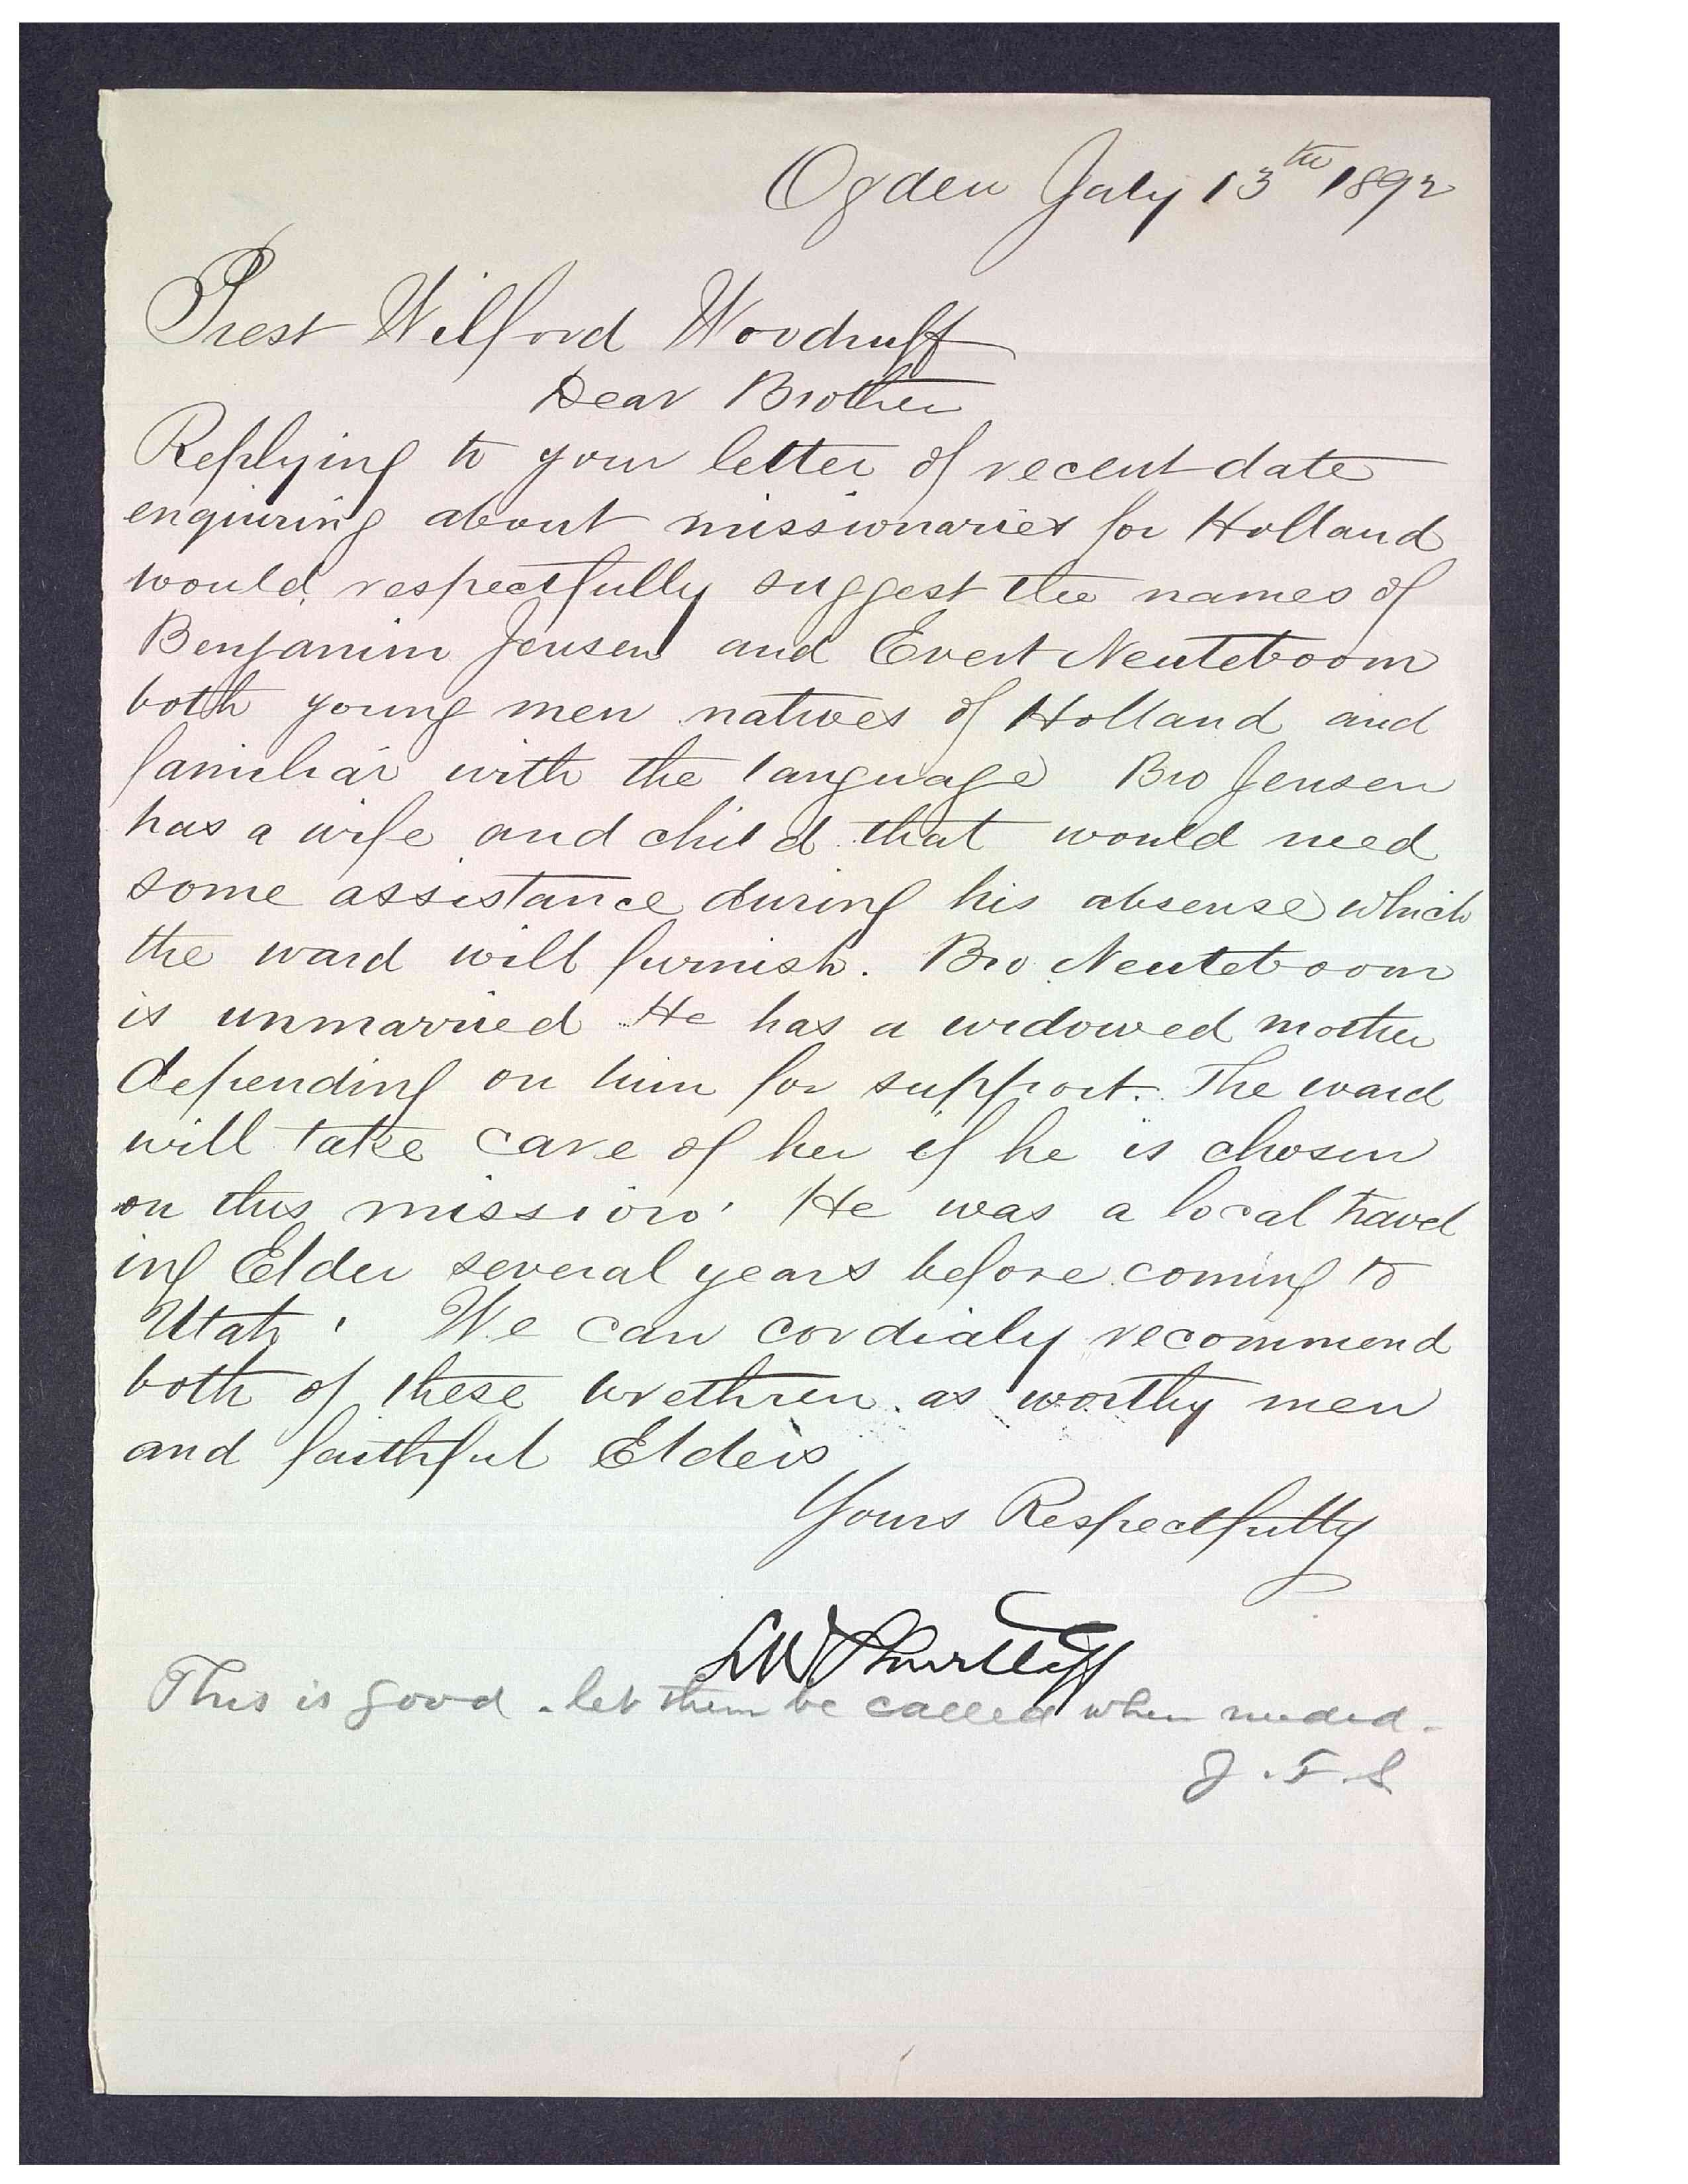 Ogden July 13th 1892
Prest Wilford Woodruff
Dear Brother
Replying to your letter of recent date
enquiring about missionaries for Holland
would respectfully suggest the names of
Benjamin Jensen and Evert Neuteboom
both young men natives of Holland and
familiar with the language Bro Jensen
has a wife and child that would need
some assistance during his absense which
the ward will furnish. Bro Neuteboom
is unmarried He has a widowed mother
depending on him for support. The ward
will take care of her if he is chosen
on this mission. He was a local travel
ing Elder several years before coming to
Utah. We can cordialy recommend
both of these brethren as worthy men
and faithful Elders
Yours Respectfully
LW Shurtliff
This is good - let them be called when needed -
J. F. S